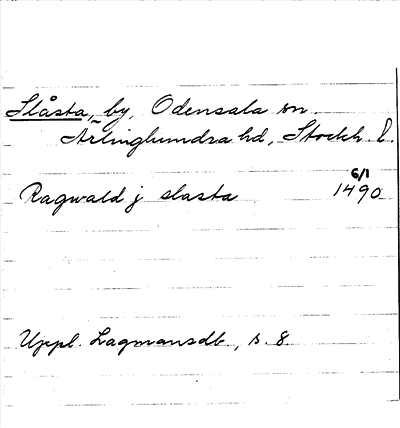 Slåsta, by, Odensala sn.
Ärlinghundra hd, Stockh. l.
6/1
Ragwald j slasta 1490
Uppl. Lagmansdb, s. 8.